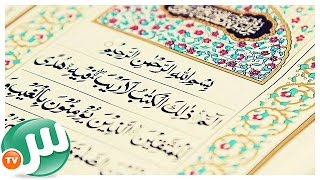 بِسْمِ اللَّهِ الرَّحْمَٰنِ الرَّحِيمِ
الم ذَٰلِكَ الْكِتَابُ لَا رَيْبَ فِيهِ هُدًى
لِلْمُتَّقِينَ الَّذِينَ يُؤْمِنُونَ بِالْغَيْبِ
س
TV